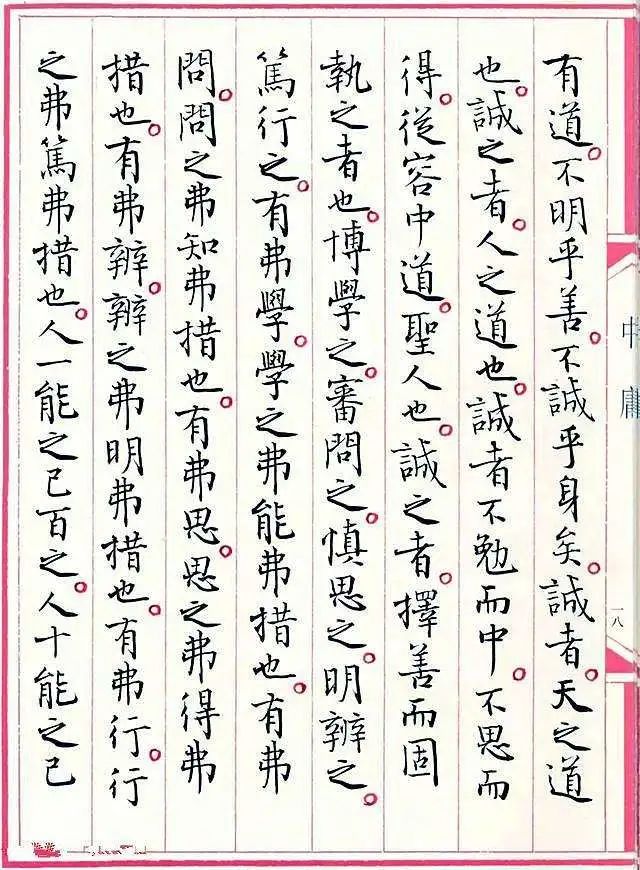 有道。不明乎善。不誠乎身矣。誠者。天之道
也。誠之者。人之道也。誠者不勉而中。不思而
得。從容中道。聖人也。誠之者。擇善而固
執之者也。博學之。審問之。慎思之。明辨之。
篤行之。有弗學。學之弗能弗措也。有弗
問。問之弗知弗措也。有弗思。思之弗得弗
措也。有弗辨。辨之弗明弗措也。有弗行。行
之弗篤弗措也。人一能之己百之。人十能之己
中庸
一八